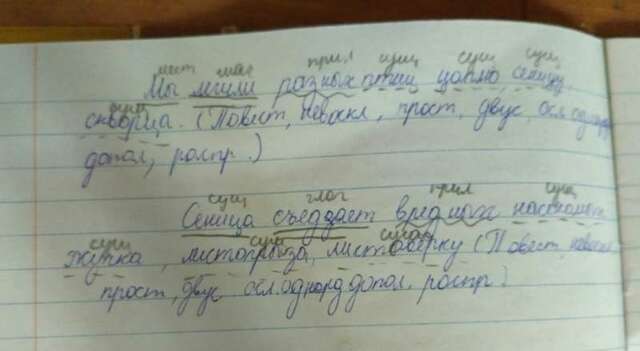 мест глаг прил сущ сущ сущ
Мы лепили разных птиц цаплю, сеницу,
сущ
скворца. (Повест, невоскл, прост, двус, осл. однор
допол, распр.)
сущ глаг прил сущ
Сеница съедает вред насеком
сущ сущ сущ
жучка, листогрыза, листовёрку (Повест, невоскл
прост, двус осл. однорд допол, распр)